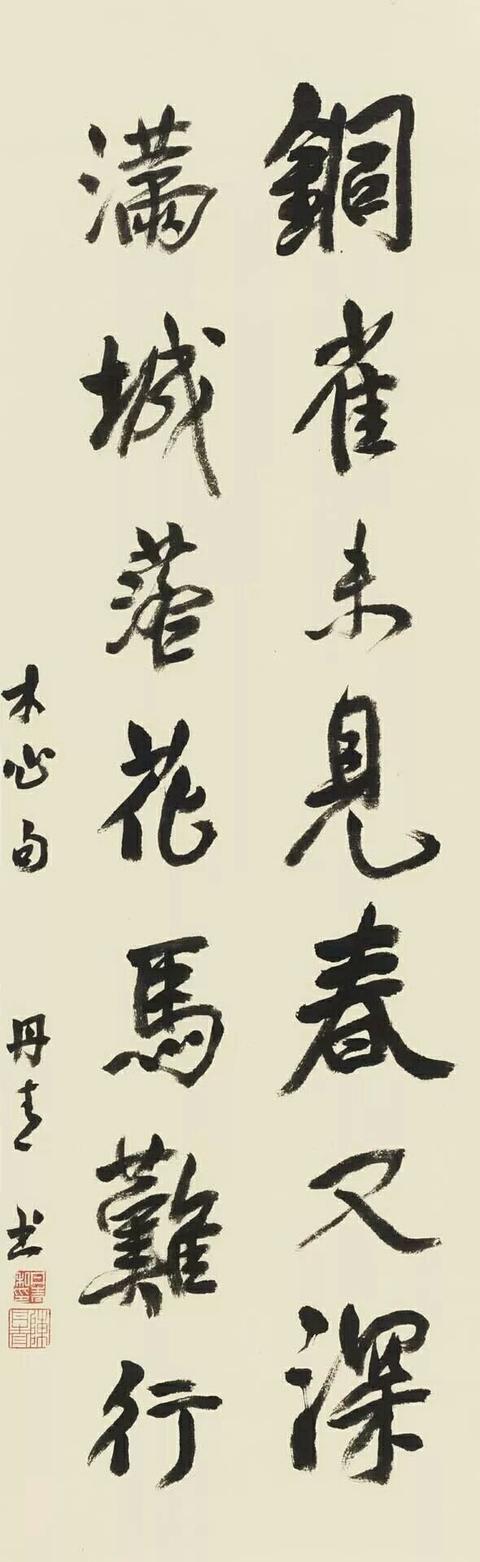 銅雀未見春又深
滿城落花馬難行
木心句
丹青书